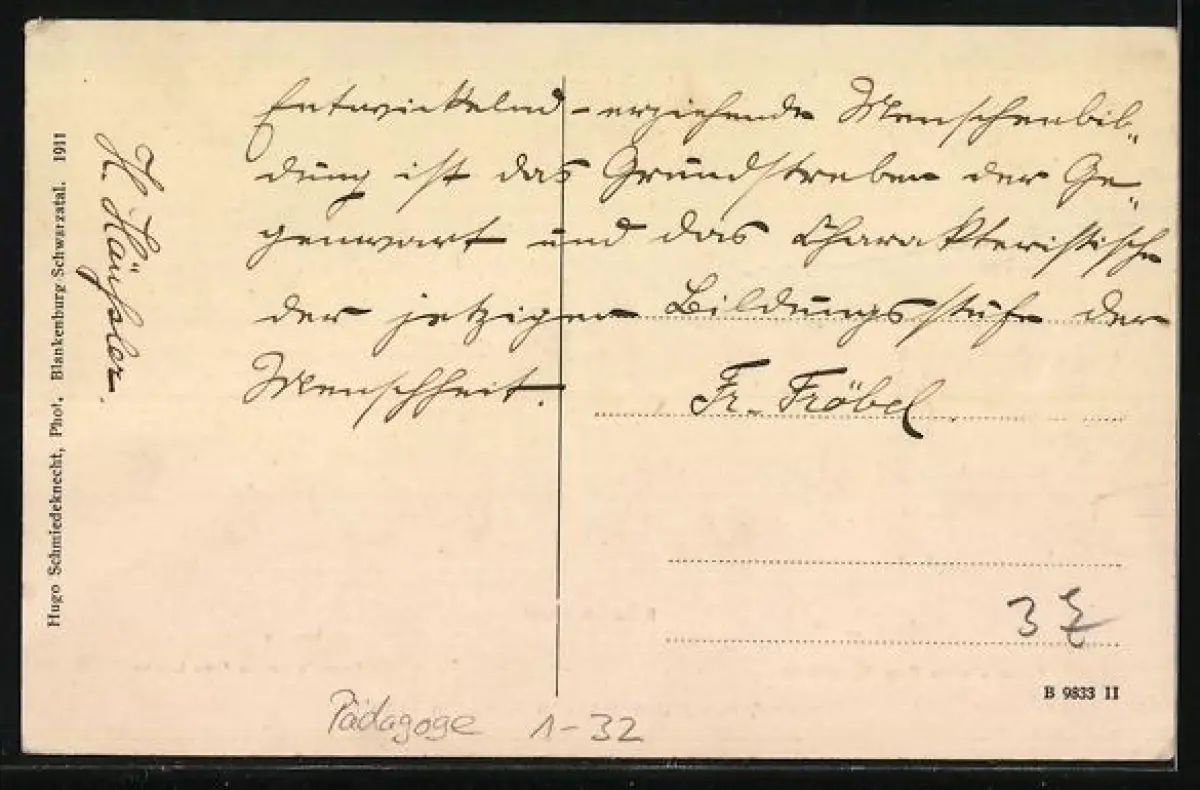 Entwickelnd-erziehende Menschenbil-
dung ist das Grundstreben der Ge-
genwart und das Charakteristische
der jetzigen Bildungsstufe der
Menschheit.
Fr. Fröbel.
H. Häußler.
Hugo Schmiedeknecht, Phot. Blankenburg Schwarzatal. 1911
3
B 9833 II
Pädagoge 1-32